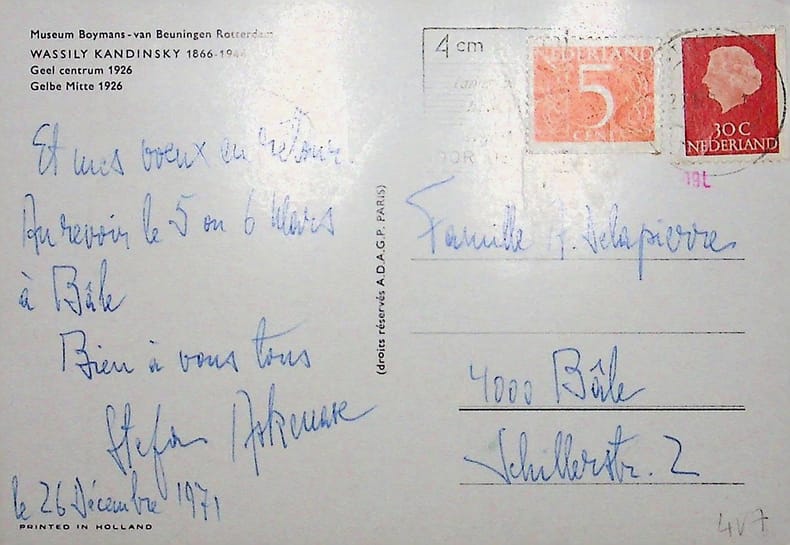 Museum Boymans-van Beuningen Rotterdam
WASSILY KANDINSKY 1866-1944
Geel centrum 1926
Gelbe Mitte 1926
Et mes voeux en retour.
Au revoir le 5 ou 6 Mars
à Bâle
Bien à vous tous
Stefan Askenase
le 26 Décembre 1971
PRINTED IN HOLLAND
(droits réservés A.D.A.G.P. PARIS)
4 cm
NEDERLAND
5
CENT
30 C
NEDERLAND
Famille A. Delapierre
4000 Bâle
Schillerstr. 2
4V7